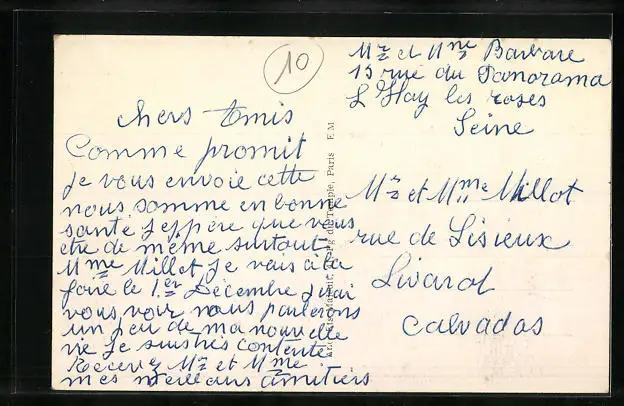 10
Mr et Mme Barbare
15 rue du Panorama
L Hay les roses
Seine
chers Amis
Comme promit
je vous envoie cette
nous somme en bonne
santé j'eppère que vous
etre de même surtout
Mme Millot je vais à la
foire le 1er Décembre j'irai
vous voir nous parlerons
un peu de ma nouvelle
vie je suis très contente
Recevez Mr et Mme
mes meilleurs amitiers
Mr et Mme Millot
rue de Lisieux
Livarot
Calvados
Temple, Paris E M